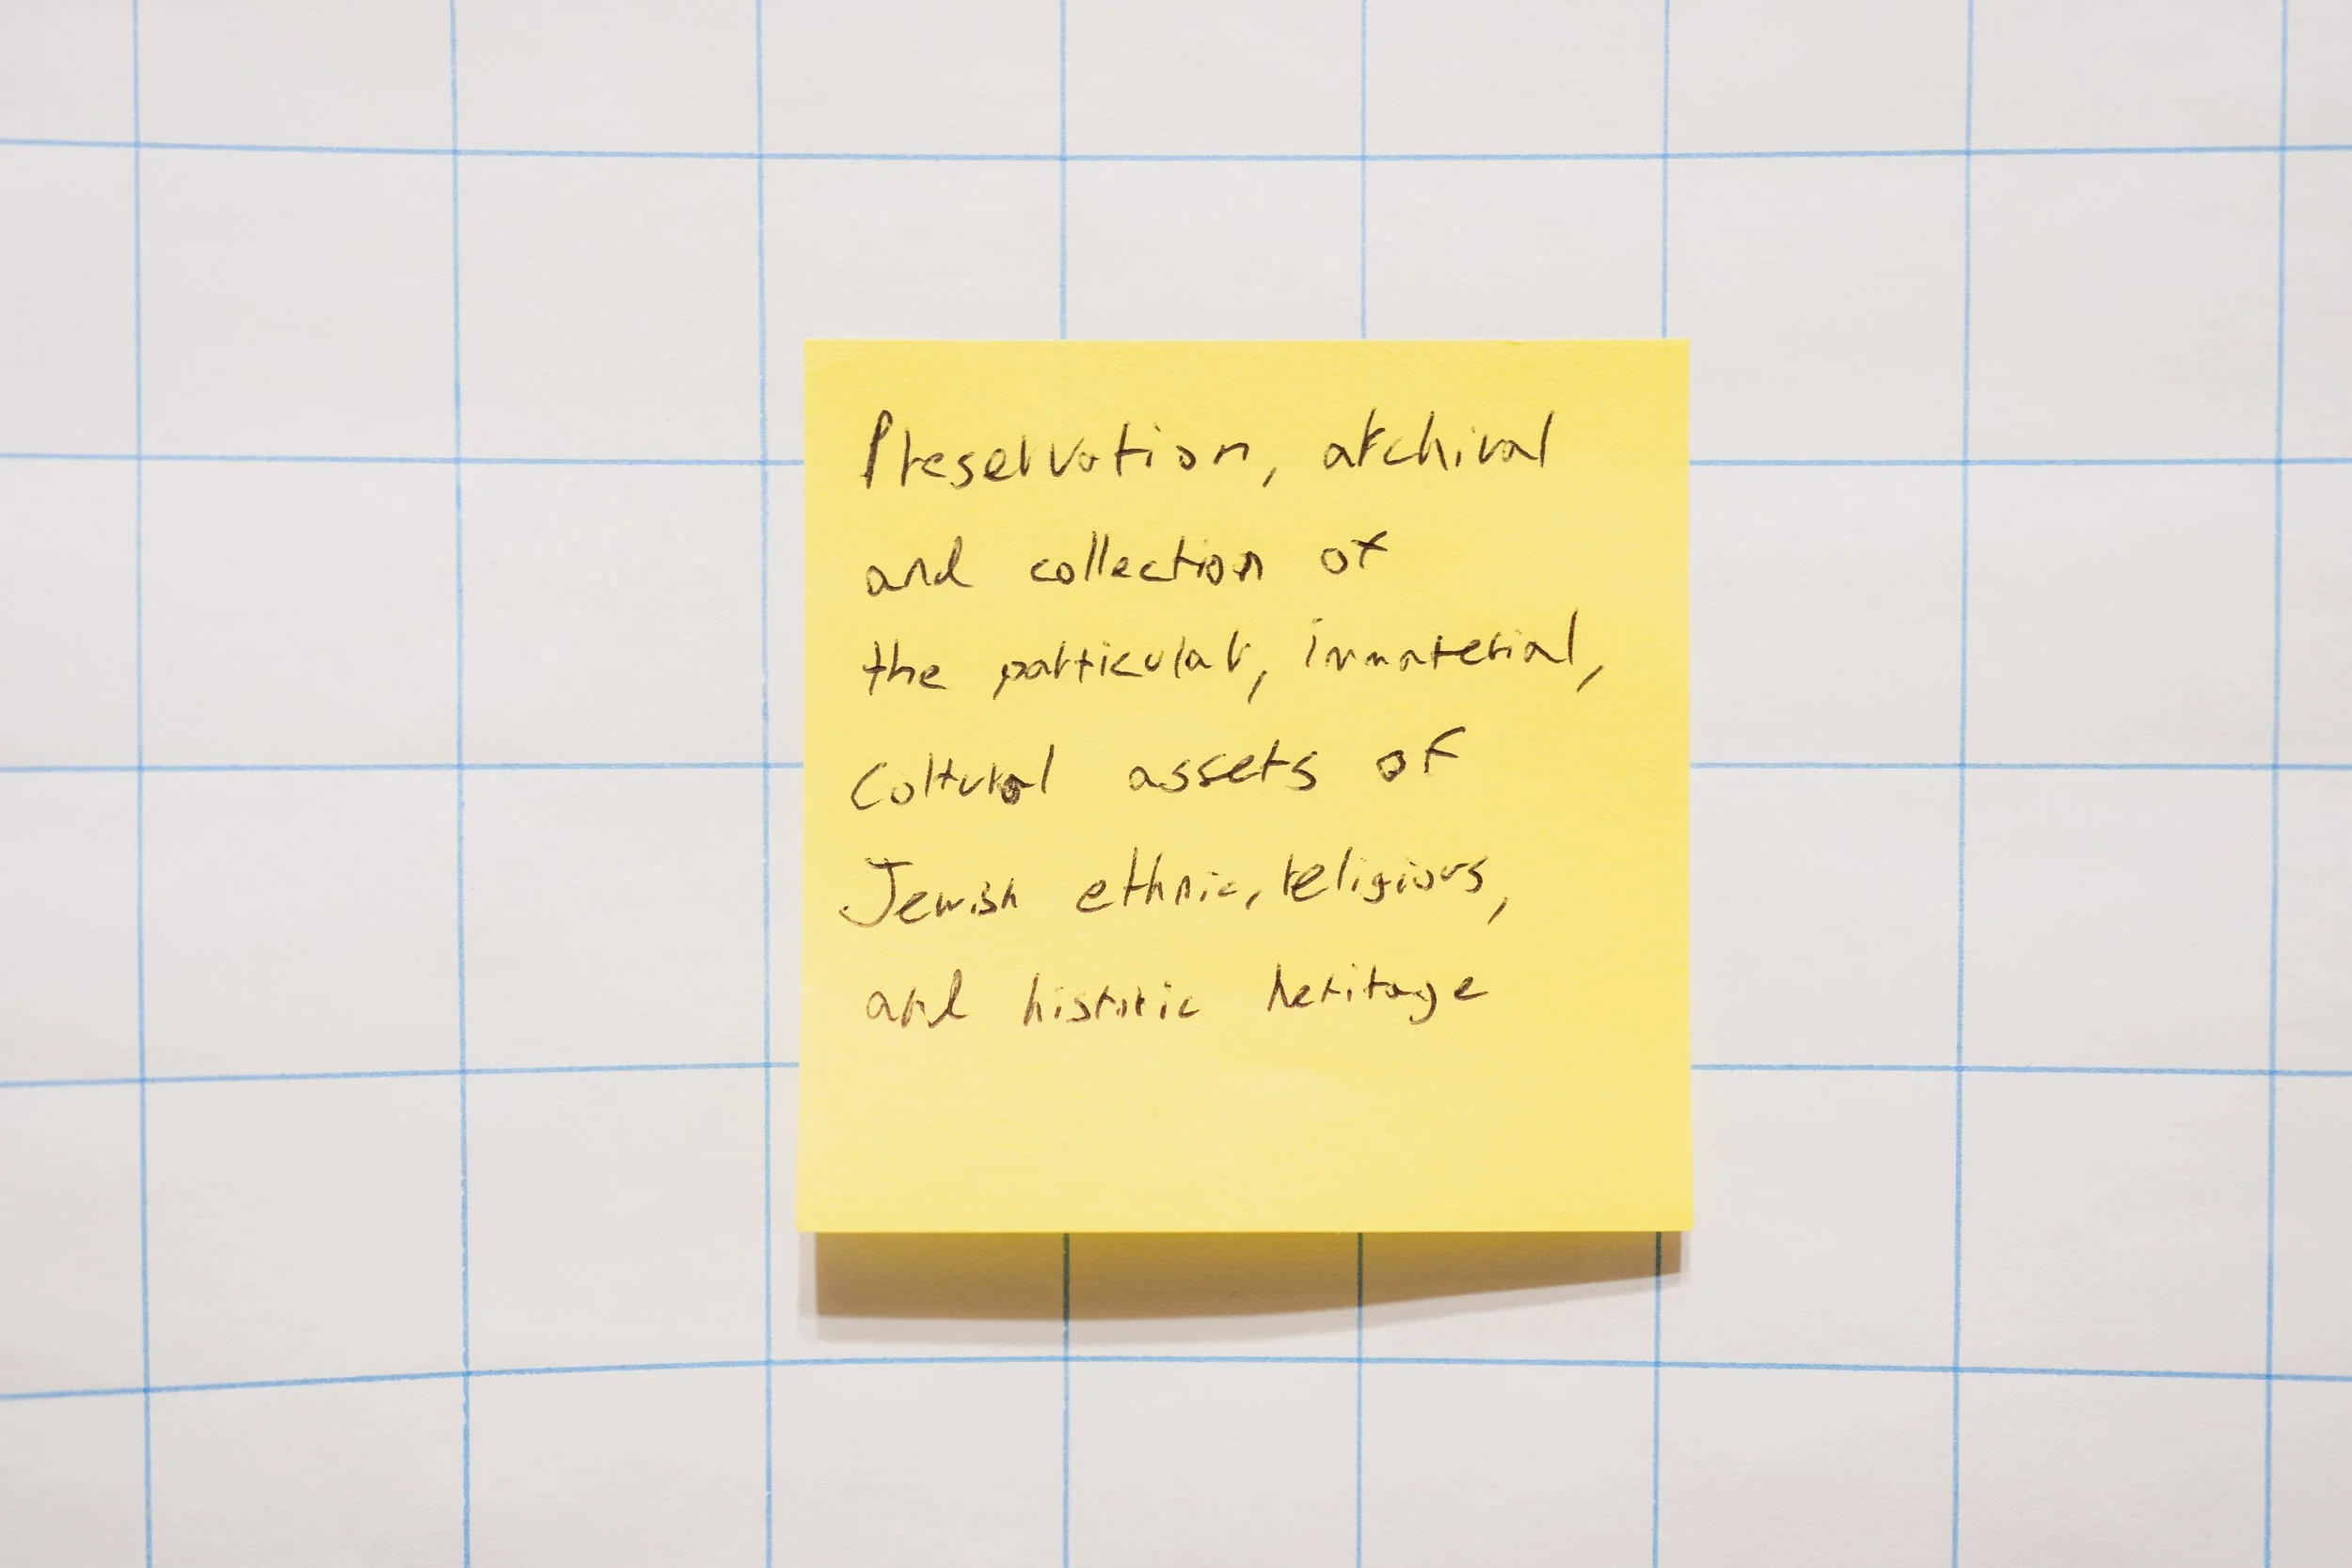 Preservation, archival
and collection of
the particular, immaterial,
Coltural assets of
Jewish ethnic, religious,
and historic heritage